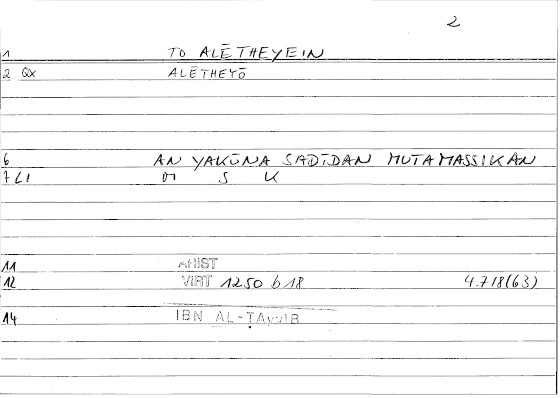 2
1 TO ALĒTHEYEIN
2 Qx ALĒTHEYŌ
6 AN YAKŪNA SADĪDAN MUTAMASSIKAN
7 LI M S K
11 AHIST
12 VIRT 1250 b 18 4.718(63)
14 IBN AL-ṬAYYIB